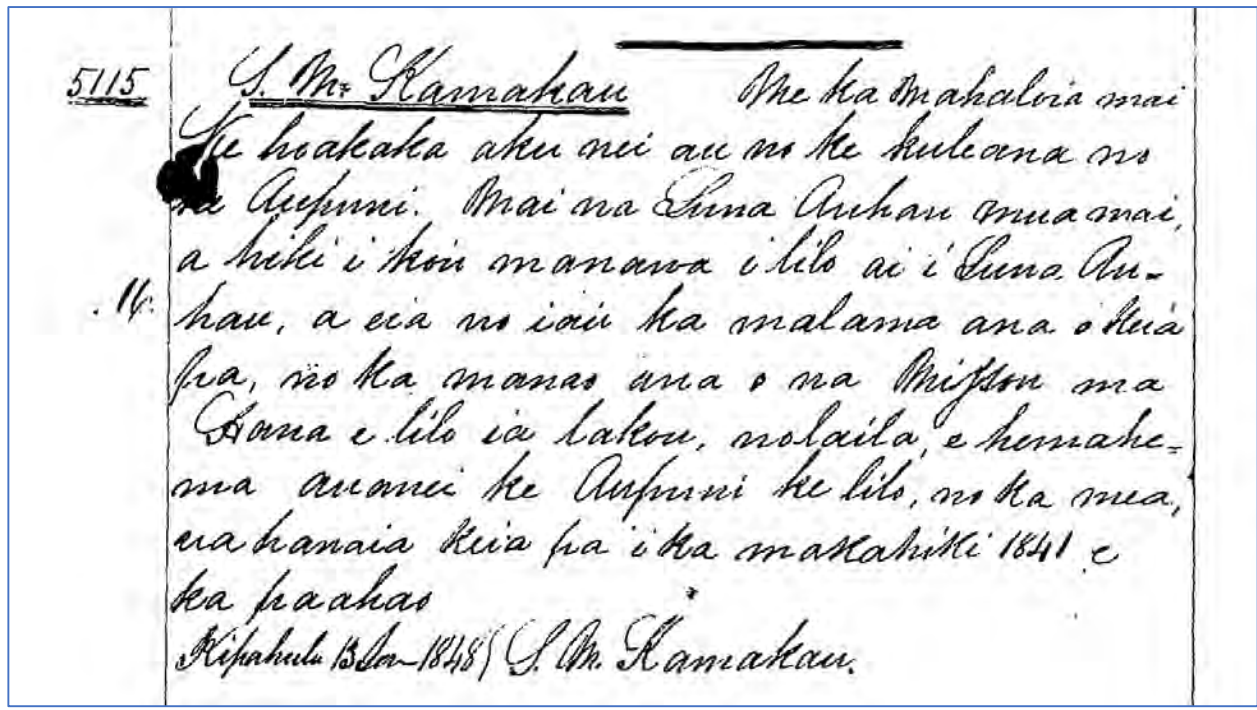 5115 S. M. Kamakau Me ka Mahaloia mai
Ke hoakaka aku nei au no ke kuleana no
ke Aupuni. Mai na Luna Auhau mua mai,
a hiki i koiu manawa i lilo ai i Luna Au-
hau, a eia no iaiu ka malama ana o keia
pa, no ka manao ana o na Misson ma
Hana e lilo ia lakou, nolaila, e hemahe-
ma auanei ke Aupuni ke lilo, no ka mea,
ua hanaia keia pa i ka makahiki 1841 e
ka paahao
Kipahulu 13 Jan 1848) S. M. Kamakau.